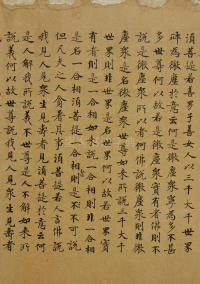 須菩提若善男子善女人以三千大千世界
碎為微塵於意云何是微塵眾寧為多不甚
多世尊何以故若是微塵眾實有者佛則不
說是微塵眾所以者何佛說微塵眾則非微
塵眾是名微塵眾世尊如來所說三千大千
世界則非世界是名世界何以故若世界實
有者則是一合相如來說一合相則非一合相
是名一合相須菩提一合相者則是不可說
但凡夫之人貪著其事須菩提若人言佛說
我見人見眾生見壽者見須菩提於意云何
是人解我所說義不世尊是人不解如來所
說義何以故世尊說我見人見眾生見壽者